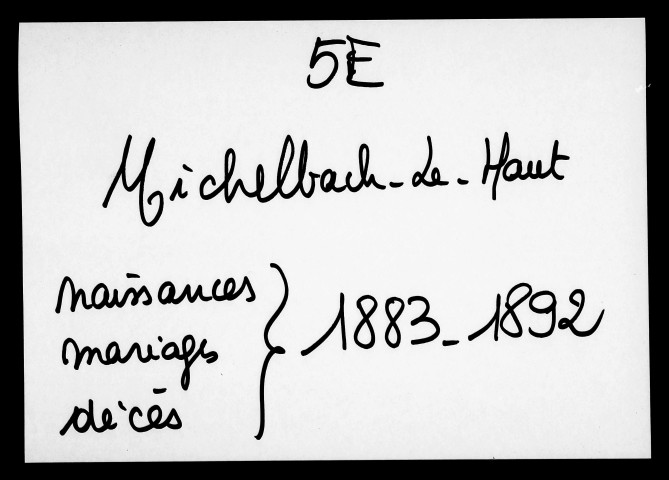 5E
Michelbach-Le-Haut
naissances
mariages
décès
1883-1892